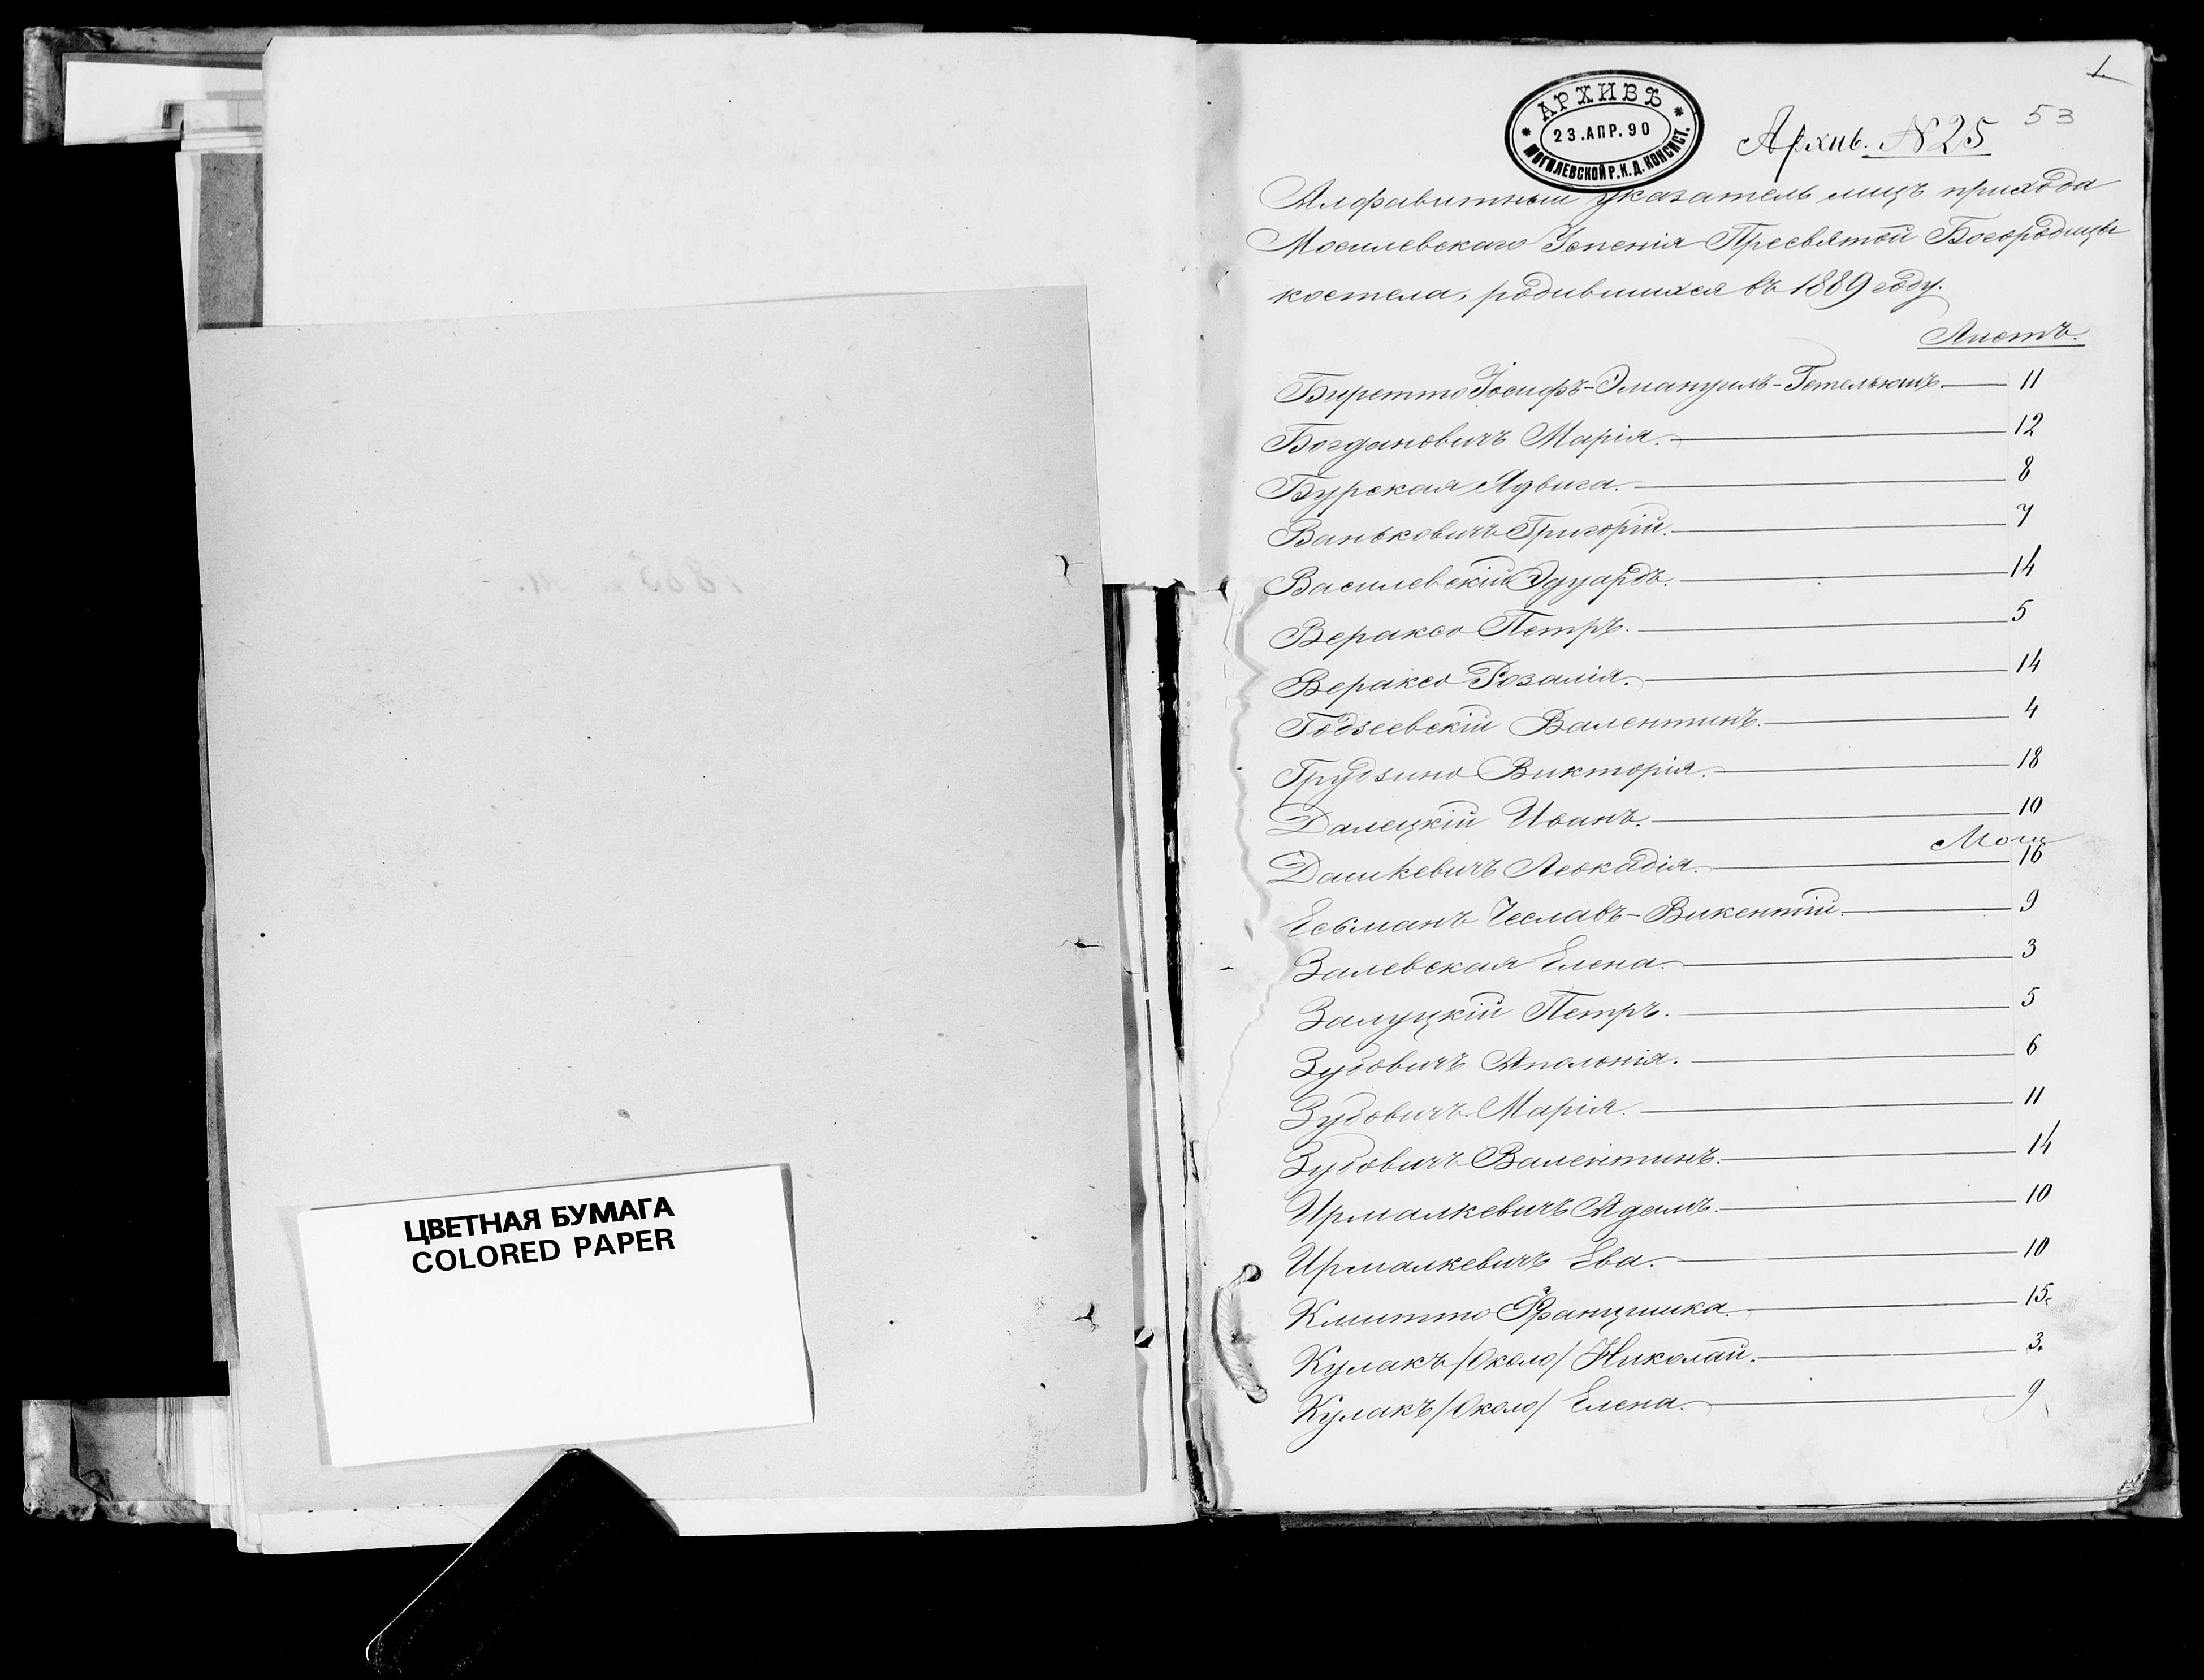 ЦВЕТНАЯ БУМАГА
COLORED PAPER
1.
АРХИВЪ
23.АПР.90
МОГИЛЕВСКОЙ Р.К.Д.КОНСИСТ.
Архив. №25
53
Алфавитный указатель лицъ прихода
Могилевскаго Успенія Пресвятой Богородицы
костела, родившихся въ 1889 году.
Листъ.
Биретто Іосифъ-Эмануилъ- 11
Богдановичъ Марія. 12
Бурская Ядвига. 8
Ваньковичъ Григорій. 7
Василевскій Эдуардъ. 14
Вераксо Петръ. 5
Вераксо Розалія. 14
Годзеевскій Валентинъ. 4
Грудзино Викторія. 18
Далецкій Иванъ. 10
Дашкевичъ Леокадія. 16
Есьманъ Чеславъ-Викентій. 9
Залевская Елена. 3
Залуцкій Петръ. 5
Зубовичъ Аполонія. 6
Зубовичъ Марія. 11
Зубовичъ Валентинъ. 14
Ирмалкевичъ Адамъ. 10
Ирмалкевичъ Ева. 10
Клитто Францишка. 15.
Кулакъ /Около/ Николай. 3.
Кулакъ /Около/ Елена. 9